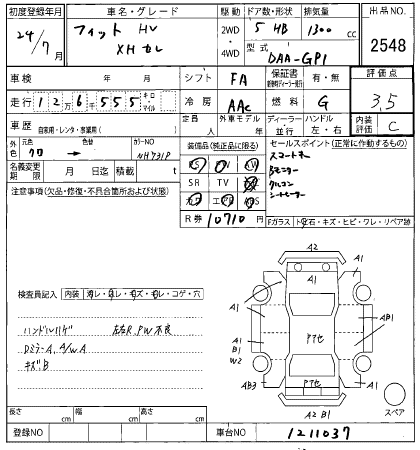 初度登録年月 車名・グレード 駆動 ドア数・形状 排気量 出品NO
24/7月 フィット HV 2WD・4WD 5 HB 1300cc 2548
型式 DAA-GP1
車検 年 月 シフト FA 保証書 有・無 評価点
走行 12万6千555 キロ・マイル 冷房 AAC 燃料 G 3.5
車歴 自家用・レンタ・事業用( ) 定員 人 外車モデル 年 ディーラー・並行 ハンドル 左・右 内装評価 C
色 元色 クロ → 色替 カラーNO NH731P
装備品(純正品に限る) セールスポイント(正常に作動するもの)
名義変更期限 月 日迄 積載 t
SR TV
スマートキー
Bモニター
クルコン
シートヒーター
注意事項(欠品・修復・不具合箇所および状態)
R券 10710円
Fガラス トビ石・キズ・ヒビ・ワレ・リペア跡
検査員記入 内装 コゲ・穴
ハンドルハゲ 左右R.PW不良
Dミラー A, A/W A
キズB
A2
A1
A1
A1
AB1
A1
B1
W2
Pアセ
AB3
Pアセ
A1
A2 B1
スペア
長さ cm 幅 cm 高さ cm
登録NO 車台NO 1211037